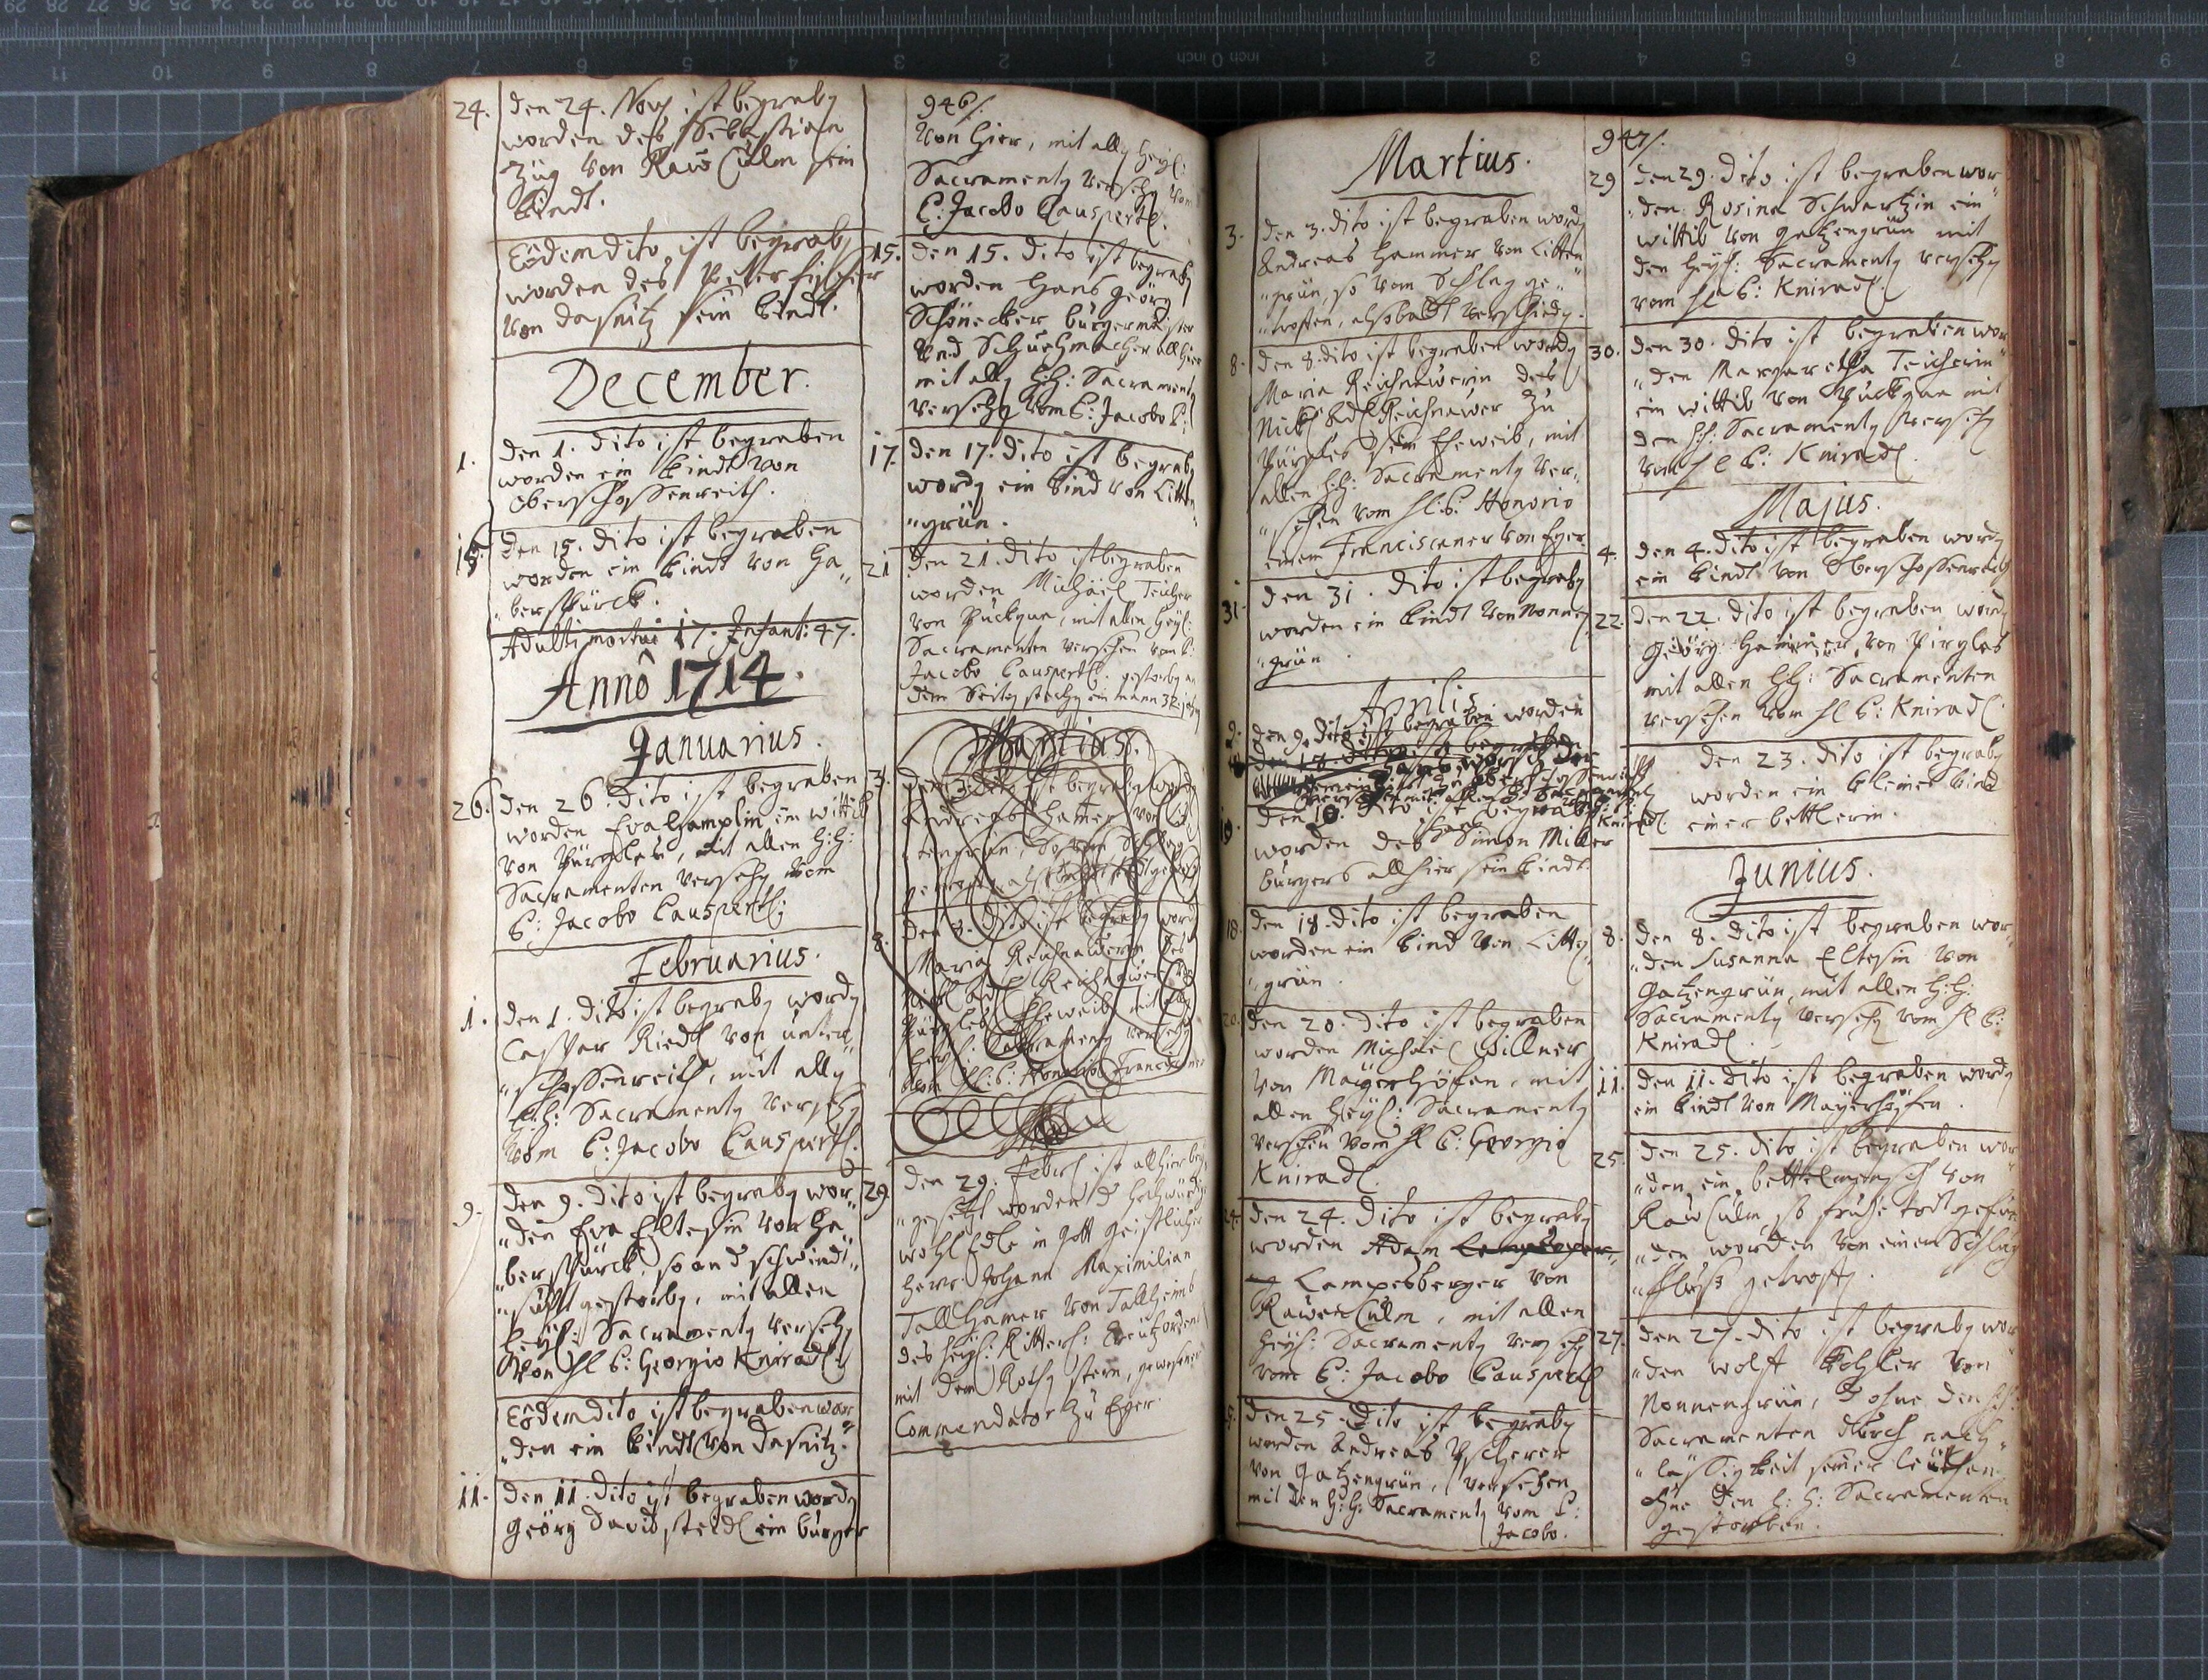 24. den 24. Nov: ist begraben
worden des Sebastian
Zug von Rauo Culm sein
kindl.
Eôdem dito ist begraben
worden des Peter fischer
von dasnitz sein kindl.
December.
1. den 1. dito ist begraben
worden ein kindl von
oberschossenreith.
15. den 15. dito ist begraben
worden ein kindt von Ha„
„berspürck.
Adulti mortui 17. Infant: 47.
Annô 1714.
Januarius.
26. den 26. dito ist begraben
worden Eva Hamplin ein wittib
von Pürgles, mit allen H:H:
Sacramenten versehen vom
P: Jacobo Causpertl:
Februarius.
1. den 1. dito ist begraben worden
Caspar Riedl von unter„
„schossenreith, mit allen
H:H: Sacramenten versehen
vom P: Jacobo Causpertl.
9. den 9. dito ist begraben wor„
„den Eva Eltesin von Ha„
„berspürck, so an d schwindt„
„sucht gestorben, mit allen
Heyl: Sacramenten versehen
von H P: Georgio Kniradl.
Eôdem dito ist begraben wor„
„den ein kindl von dasnitz.
11. den 11. dito ist begraben worden
Geörg david steidl ein burger
946/.
von hier, mit allen Heyl:
Sacramenten versehen vom
P: Jacobo Causpertl.
15. den 15. dito ist begraben
worden Hans Geörg
Schönecker burgermeister
und Schuehmacher allhier
mit allen H:H: Sacramenten
versehen vom P: Jacobo P:
17. den 17. dito ist begraben
worden ein kind von Litten„
„grün.
21 den 21. dito ist begraben
worden Michäel Teicher
von Puckgau, mit allen Heyl:
Sacramenten versehen von P:
Jacobo Causpertl. gestorben an
dem Seiten stechen ein mann 32. jahr
Martius.
3. den 3. dito ist begraben worden
Andreas Hamer von Lit„
„tengrün, so vom Schlag
8. den 8. dito ist begraben worden
Maria Reichnawerin des
Nickl Adl Reichnawer zu
Pürgles Eheweib, mit allen
Heyl: Sacramenten versehen
vom H: P: Honorio Franciscaner
29. den 29. Febr: ist allhier bey„
„gesetzt worden d hochwürdig
wohl Edle in Gott geistliche
Herr Johann Maximilian
Tallhamer von Tallheimb
des Heyl: Ritterl: Creutzordens
mit dem Rothen stern, gewesener
Commendator zu Eger.
Martius.
3. den 3. dito ist begraben worden
Andreas Hammer von Litten„
„grün, so vom Schlag ge„
„troffen, alsobaldt verschieden.
8. den 8. dito ist begraben worden
Maria Reichnawerin des
Nickl Adl Reichnawer zu
Pürgles sein Eheweib, mit
allen H:H: Sacramenten ver„
„sehen vom H. P: Honorio
einem Franciscaner von Eger.
31. den 31. dito ist begraben
worden ein kindl von Nonnen„
„grün.
Aprilis
9. den 9. dito ist begraben worden
10. den 10. dito ist begraben
worden des Simon Miller
burgers allhier sein kindt.
18. den 18. dito ist begraben
worden ein kind von Litten„
„grün.
20. den 20. dito ist begraben
worden Michael Willner
von Mayerhöfen, mit
allen Heyl: Sacramenten
versehen vom H P: Georgio
Kniradl.
24. den 24. dito ist begraben
worden Adam
Lampesberger von
Rawen Culm, mit allen
Heyl: Sacramenten versehen
vom P: Jacobo Causpertl
25. den 25. dito ist begraben
worden Andreas Pscherer
von Gatzengrün, versehen
mit den H:H: Sacramenten vom P:
Jacobo.
947/.
29 den 29. dito ist begraben wor„
„den Rosina Schwartzin ein
wittib von Gatzengrün mit
den Heyl: Sacramenten versehen
vom H P: Kniradl.
30. den 30. dito ist begraben wor„
„den Margaretha Teicherin
ein wittib von Puckgau mit
den H:H: Sacramenten versehen
vom H P: Kniradl.
Majus.
4. den 4. dito ist begraben worden
ein kindl von Oberschossenreith
22. den 22. dito ist begraben worden
Geörg Hammer von Pirgles
mit allen H:H: Sacramenten
versehen vom H P: Kniradl.
den 23. dito ist begraben
worden ein kleines kind
einer bettlerin.
Junius.
8. den 8. dito ist begraben wor„
„den Susanna Eltesin von
Gatzengrün, mit allen H:H:
Sacramenten versehen vom H P:
Kniradl.
11. den 11. dito ist begraben worden
ein kindl von Mayerhöfen.
25. den 25. dito ist begraben wor„
„den ein bettelmensch von
Raw Culm, so fruhe todt gefun„
„den worden von einem Schlag
„fluß getroffen.
27. den 27. dito ist begraben wor„
„den wolff Köhler von
Nonnengrün, ohne den H:H:
Sacramenten durch nach„
„lässigkeit seiner leuthen
ohne den H:H: Sacramenten
gestorben.